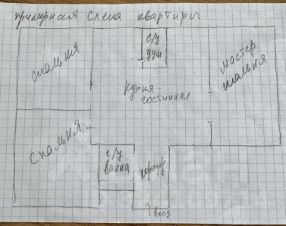 примерная схема квартиры
спальня
с/у
душ
мастер
спальня
кухня
гостинная
спальня
с/у
ванна
коридор
↑вход